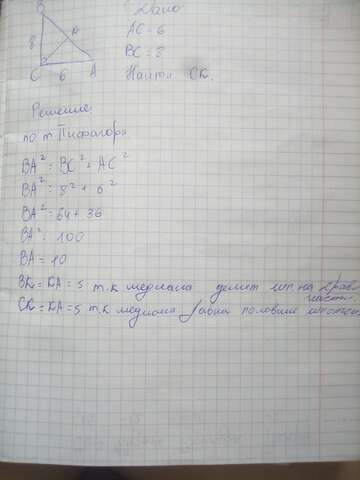 Дано
B
AC = 6
K
8
BC = 8
C 6 A
Найти CK.
Решение
по т. Пифагора
BA² = BC² + AC²
BA² = 8² + 6²
BA² = 64 + 36
BA² = 100
BA = 10
BK = KA = 5 т.к медиана делит гип на 2 рав
части.
CK = KA = 5 т.к медиана равна половине